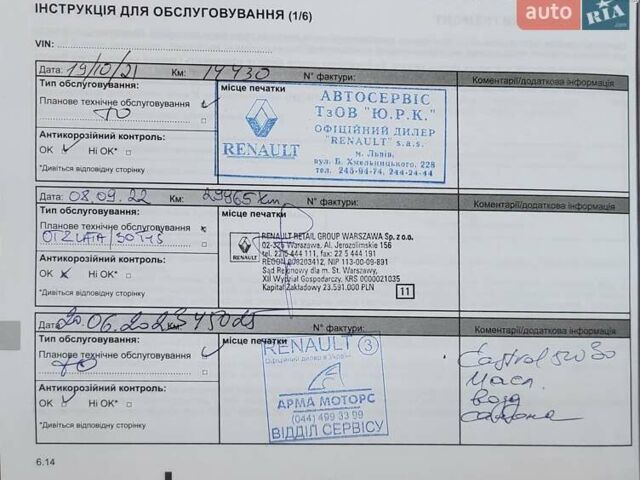 ІНСТРУКЦІЯ ДЛЯ ОБСЛУГОВУВАННЯ (1/6)
auto RIA .com
VIN:
Дата: 19/10/21 Км: 14430 N° фактури: Коментарі/додаткова інформація
Тип обслуговування: місце печатки
Планове технічне обслуговування
ТО
Антикорозійний контроль:
OK Ні OK*
*Дивіться відповідну сторінку
АВТОСЕРВІС
ТзОВ "Ю.Р.К."
ОФІЦІЙНИЙ ДИЛЕР
"RENAULT" s.a.s.
м. Львів,
вул. Б. Хмельницького, 228
тел. 245-94-74, 244-24-44
RENAULT
Дата: 08.09.22 Км: 29965km N° фактури: Коментарі/додаткова інформація
Тип обслуговування: місце печатки
Планове технічне обслуговування
Антикорозійний контроль:
OK Ні OK*
*Дивіться відповідну сторінку
RENAULT
RENAULT RETAIL GROUP WARSZAWA Sp. z o.o.
02-326 Warszawa, Al. Jerozolimskie 156
tel. 22 5 444 111, fax: 22 5 444 191
REGON 009203412, NIP 113-00-09-891
Sąd Rejonowy dla m. St. Warszawy,
XII Wydział Gospodarczy, KRS 0000021035
Kapitał Zakładowy 23.591.000 PLN
11
Дата: 20.06.2023 Км: 45025 N° фактури: Коментарі/додаткова інформація
Тип обслуговування: місце печатки
Планове технічне обслуговування
ТО
Антикорозійний контроль:
OK Ні OK*
*Дивіться відповідну сторінку
RENAULT 3
Офіційний дилер в Україні
АРМА МОТОРС
(044) 499 33 99
ВІДДІЛ СЕРВІСУ
Castrol 5W30
Масл.
возд
салона
6.14